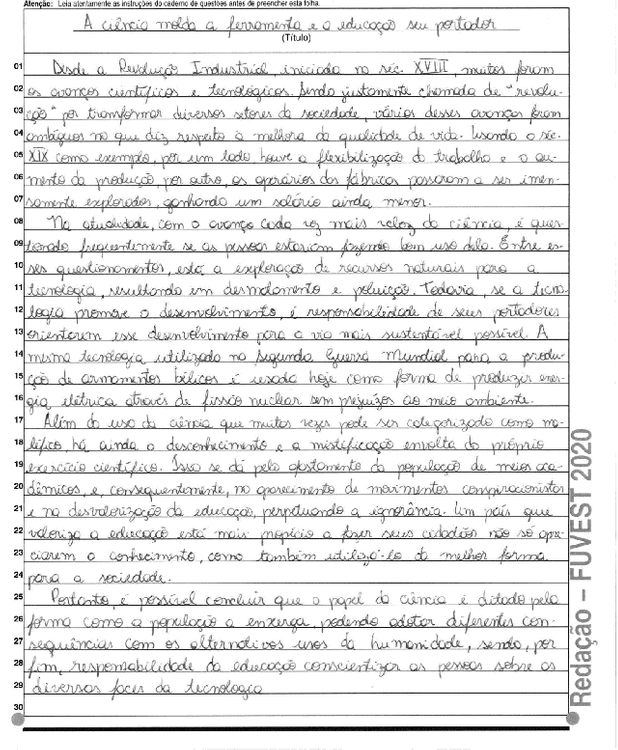 Atenção: Leia atentamente as instruções do caderno de questões antes de preencher esta folha.
A ciência molda a ferramenta e a educação seu portador
(Título)
01 Desde a Revolução Industrial, iniciada no séc. XVIII, muitos foram
02 os avanços científicos e tecnológicos. Sendo justamente chamada de "revolu-
03 ção" por transformar diversos setores da sociedade, vários desses avanços foram
04 ambíguos no que diz respeito à melhora da qualidade de vida. Usando o séc.
05 XIX como exemplo, por um lado, houve a flexibilização do trabalho e o au-
06 mento da produção, por outro, os operários das fábricas passaram a ser imen-
07 samente explorados, ganhando um salário ainda menor.
08 Na atualidade, com o avanço cada vez mais veloz da ciência, é ques-
09 tionado frequentemente se as pessoas estariam fazendo bom uso dela. Entre es-
10 ses questionamentos, está a exploração de recursos naturais para a
11 tecnologia, resultando em desmatamento e poluição. Todavia, se a tecno-
12 logia promove o desenvolvimento, é responsabilidade de seus portadores
13 orientarem esse desenvolvimento para a via mais sustentável possível. A
14 mesma tecnologia utilizada na Segunda Guerra Mundial para a produ-
15 ção de armamentos bélicos é usada hoje como forma de produzir ener-
16 gia elétrica através de fissão nuclear sem prejuízos ao meio ambiente.
17 Além do uso da ciência que muitas vezes pode ser categorizado como ma-
18 léfico, há ainda o desconhecimento e a mistificação envolta do próprio
19 exercício científico. Isso se dá pelo afastamento da população de meios aca-
20 dêmicos, e, consequentemente, no aparecimento de movimentos conspiracionistas
21 e na desvalorização da educação, perpetuando a ignorância. Um país que
22 valoriza a educação está mais propício a fazer seus cidadãos não só apre-
23 ciarem o conhecimento, como também utilizá-lo da melhor forma
24 para a sociedade.
25 Portanto, é possível concluir que o papel da ciência é ditado pela
26 forma como a população a enxerga, podendo adotar diferentes con-
27 sequências com os alternativos usos da humanidade, sendo, por
28 fim, responsabilidade da educação conscientizar as pessoas sobre as
29 diversas faces da tecnologia
30
Redação – FUVEST 2020